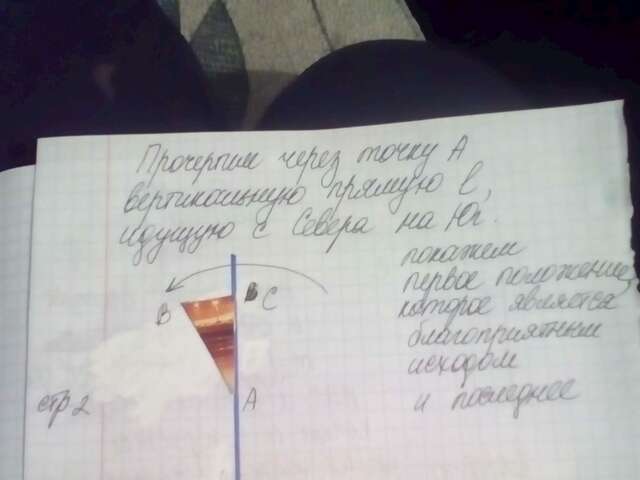 Прочертим через точку А
вертикальную прямую l,
идущую с Севера на Юг.
покажем
первое положение,
которое является
благоприятным
исходом
и последнее
B
B C
стр 2
A